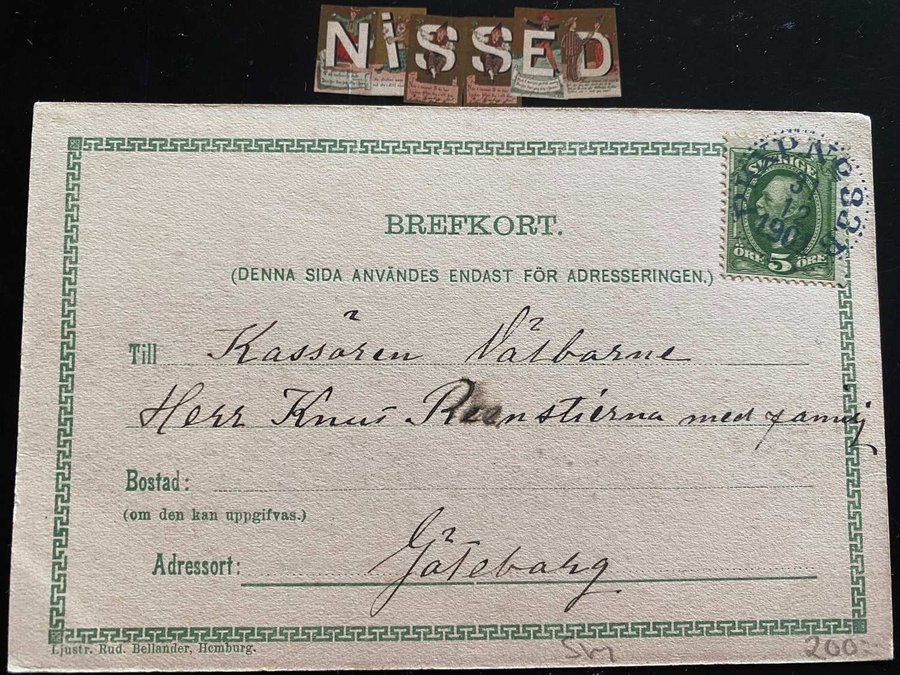 NiSSED
BREFKORT.
(DENNA SIDA ANVÄNDES ENDAST FÖR ADRESSERINGEN.)
SVERIGE
ÖRE 5 ÖRE
PKXP No 83B
31
12
190
Till Kassören Välborne
Herr Knut Reenstierna med familj
Bostad:
(om den kan uppgifvas.)
Adressort: Göteborg
Ljustr. Rud. Bellander, Hemburg.
200:-